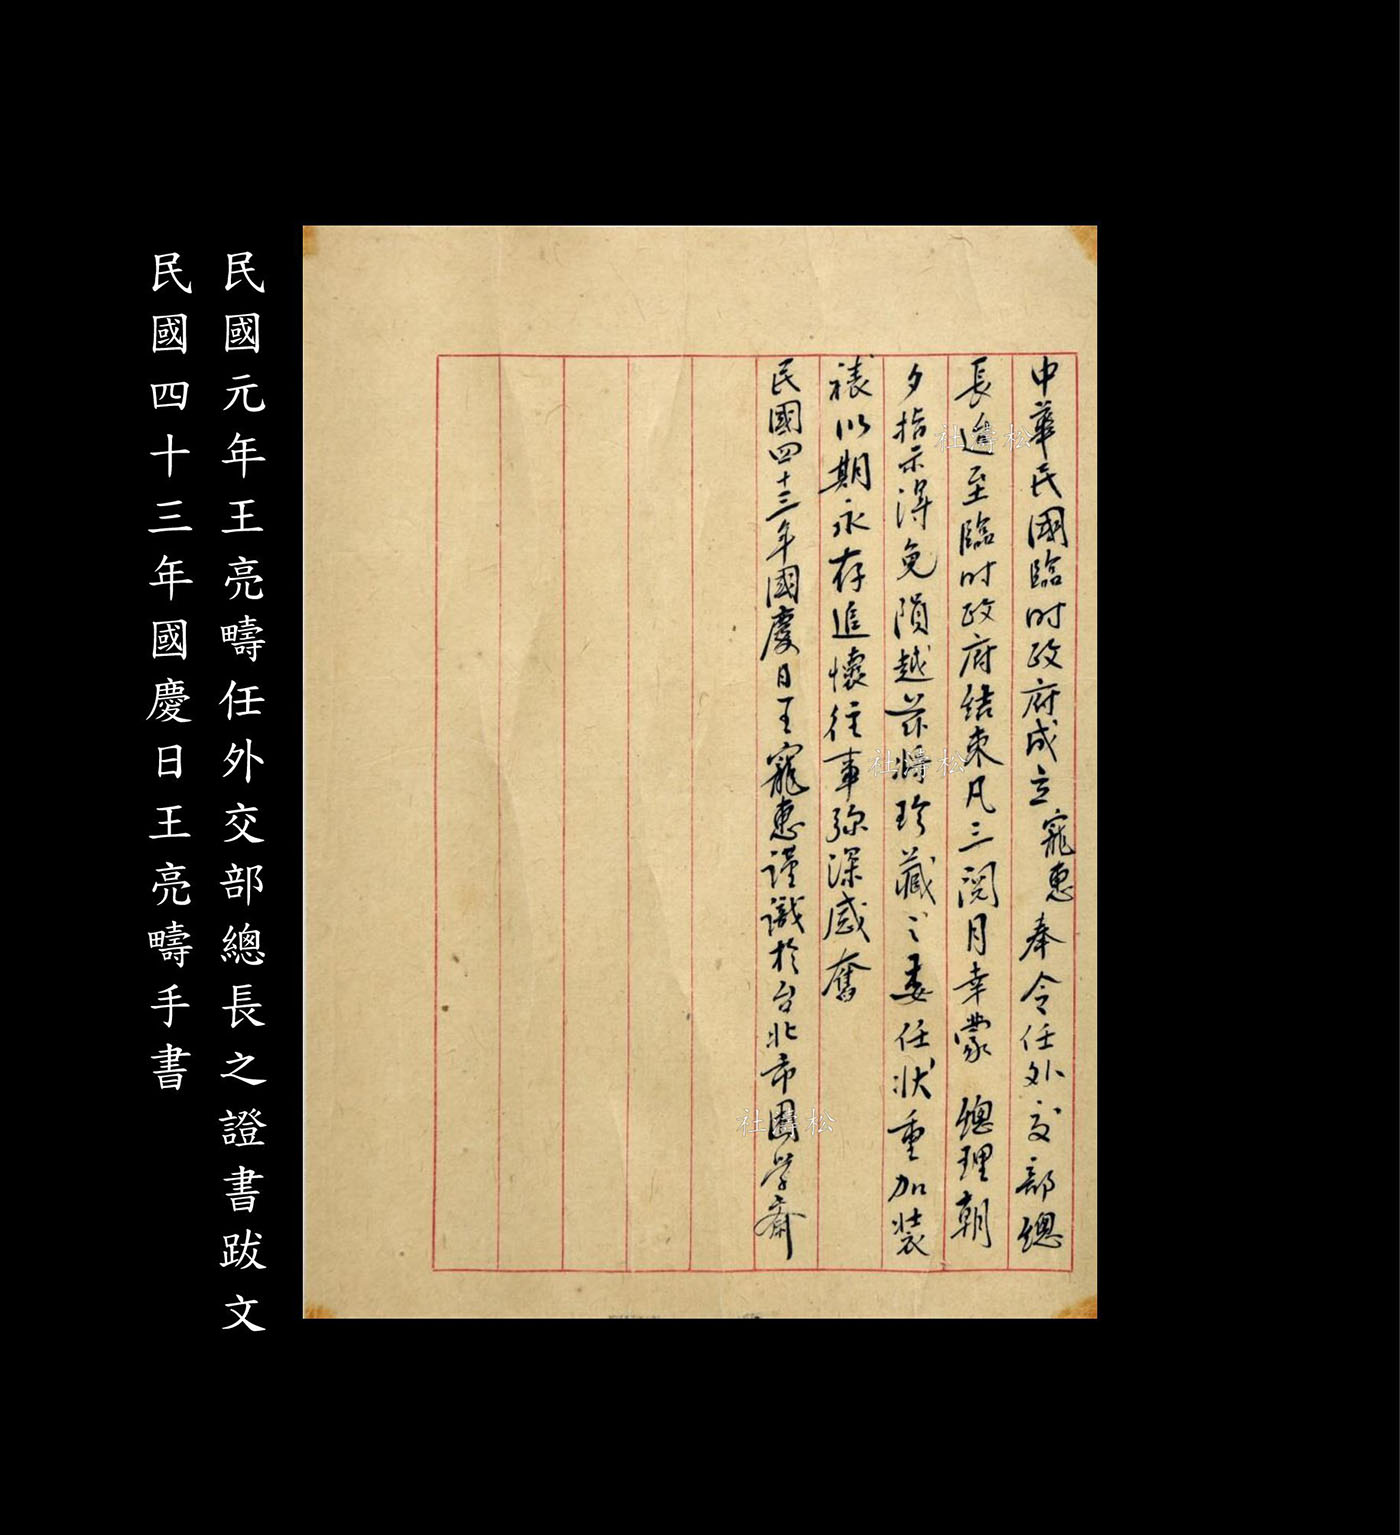 中華民國臨时政府成立寵惠奉令任外交部總
長迨至臨时政府结束凡三閱月幸蒙 總理朝
夕指示得免隕越茲將珍藏之委任狀重加装
裱以期永存追懷往事弥深感奮
民國四十三年國慶日王寵惠謹識於台北市困学齋
民國元年王亮疇任外交部總長之證書跋文
民國四十三年國慶日王亮疇手書
松濤社
松濤社
松濤社